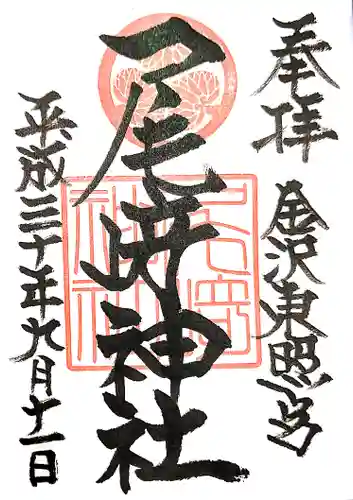 奉拝
金沢東照宮
尾崎神社
平成三十年九月十一日